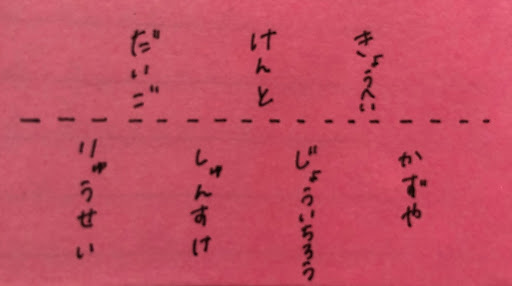 きょうへい
けんと
だいご
かずや
じょういちろう
しゅんすけ
りゅうせい